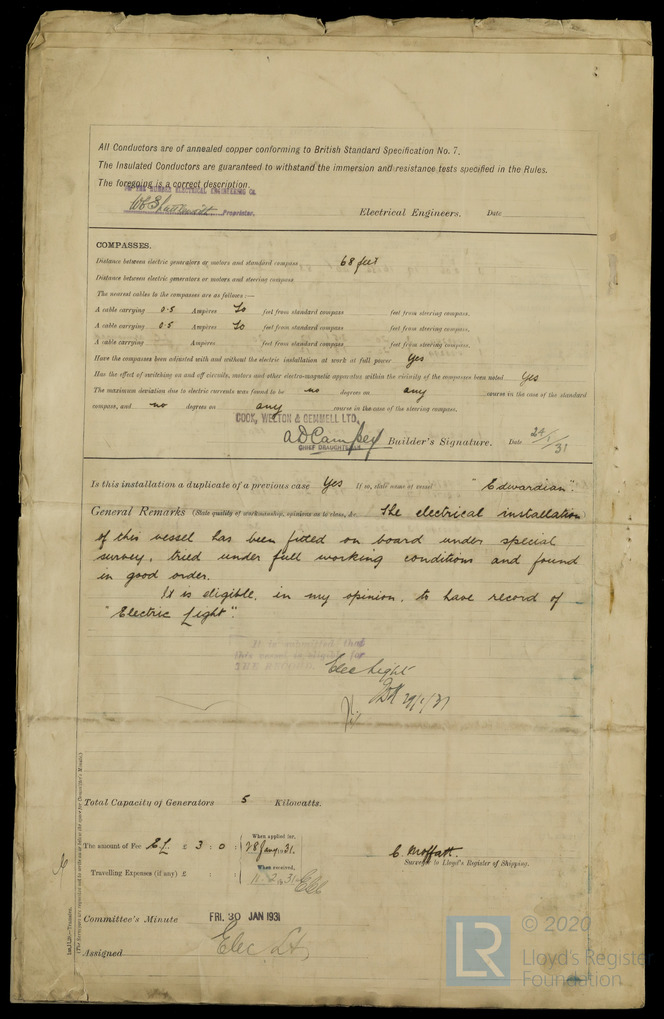 All Conductors are of annealed copper conforming to British Standard Specification No. 7.
The Insulated Conductors are guaranteed to withstand the immersion and resistance tests specified in the Rules.
The foregoing is a correct description.
ELECTRICAL ENGINEERING Co.
Proprietor. Electrical Engineers. Date
COMPASSES.
Distance between electric generators or motors and standard compass 68 feet
Distance between electric generators or motors and steering compass
The nearest cables to the compasses are as follows :—
A cable carrying 0.5 Ampères 10 feet from standard compass feet from steering compass.
A cable carrying 0.5 Ampères 10 feet from standard compass feet from steering compass.
A cable carrying Ampères feet from standard compass feet from steering compass.
Have the compasses been adjusted with and without the electric installation at work at full power Yes
Has the effect of switching on and off circuits, motors and other electro-magnetic apparatus within the vicinity of the compasses been noted Yes
The maximum deviation due to electric currents was found to be no degrees on any course in the case of the standard
compass, and no degrees on any course in the case of the steering compass.
COOK, WELTON & GEMMELL LTD.
Builder's Signature. Date 24/1/31
CHIEF DRAUGHTSMAN.
Is this installation a duplicate of a previous case Yes If so, state name of vessel "Edwardian".
General Remarks (State quality of workmanship, opinions as to class, &c. The electrical installation
of this vessel has been fitted on board under special
survey, tried under full working conditions and found
in good order.
It is eligible, in my opinion, to have record of
"Electric Light".
It is submitted that
this vessel is eligible for
THE RECORD. Elec Light
29/1/31
Total Capacity of Generators 5 Kilowatts.
The amount of Fee £ 3 : 0 : When applied for,
28 Jany 1931.
Travelling Expenses (if any) £ : : When received,
11.2.31
C. Moffatt.
Surveyor to Lloyd's Register of Shipping.
Committee's Minute FRI. 30 JAN 1931
Assigned Elec. Lt.
(The Surveyors are requested not to write on or below the space for Committee's Minute.)
© 2020
LR Lloyd's Register
Foundation